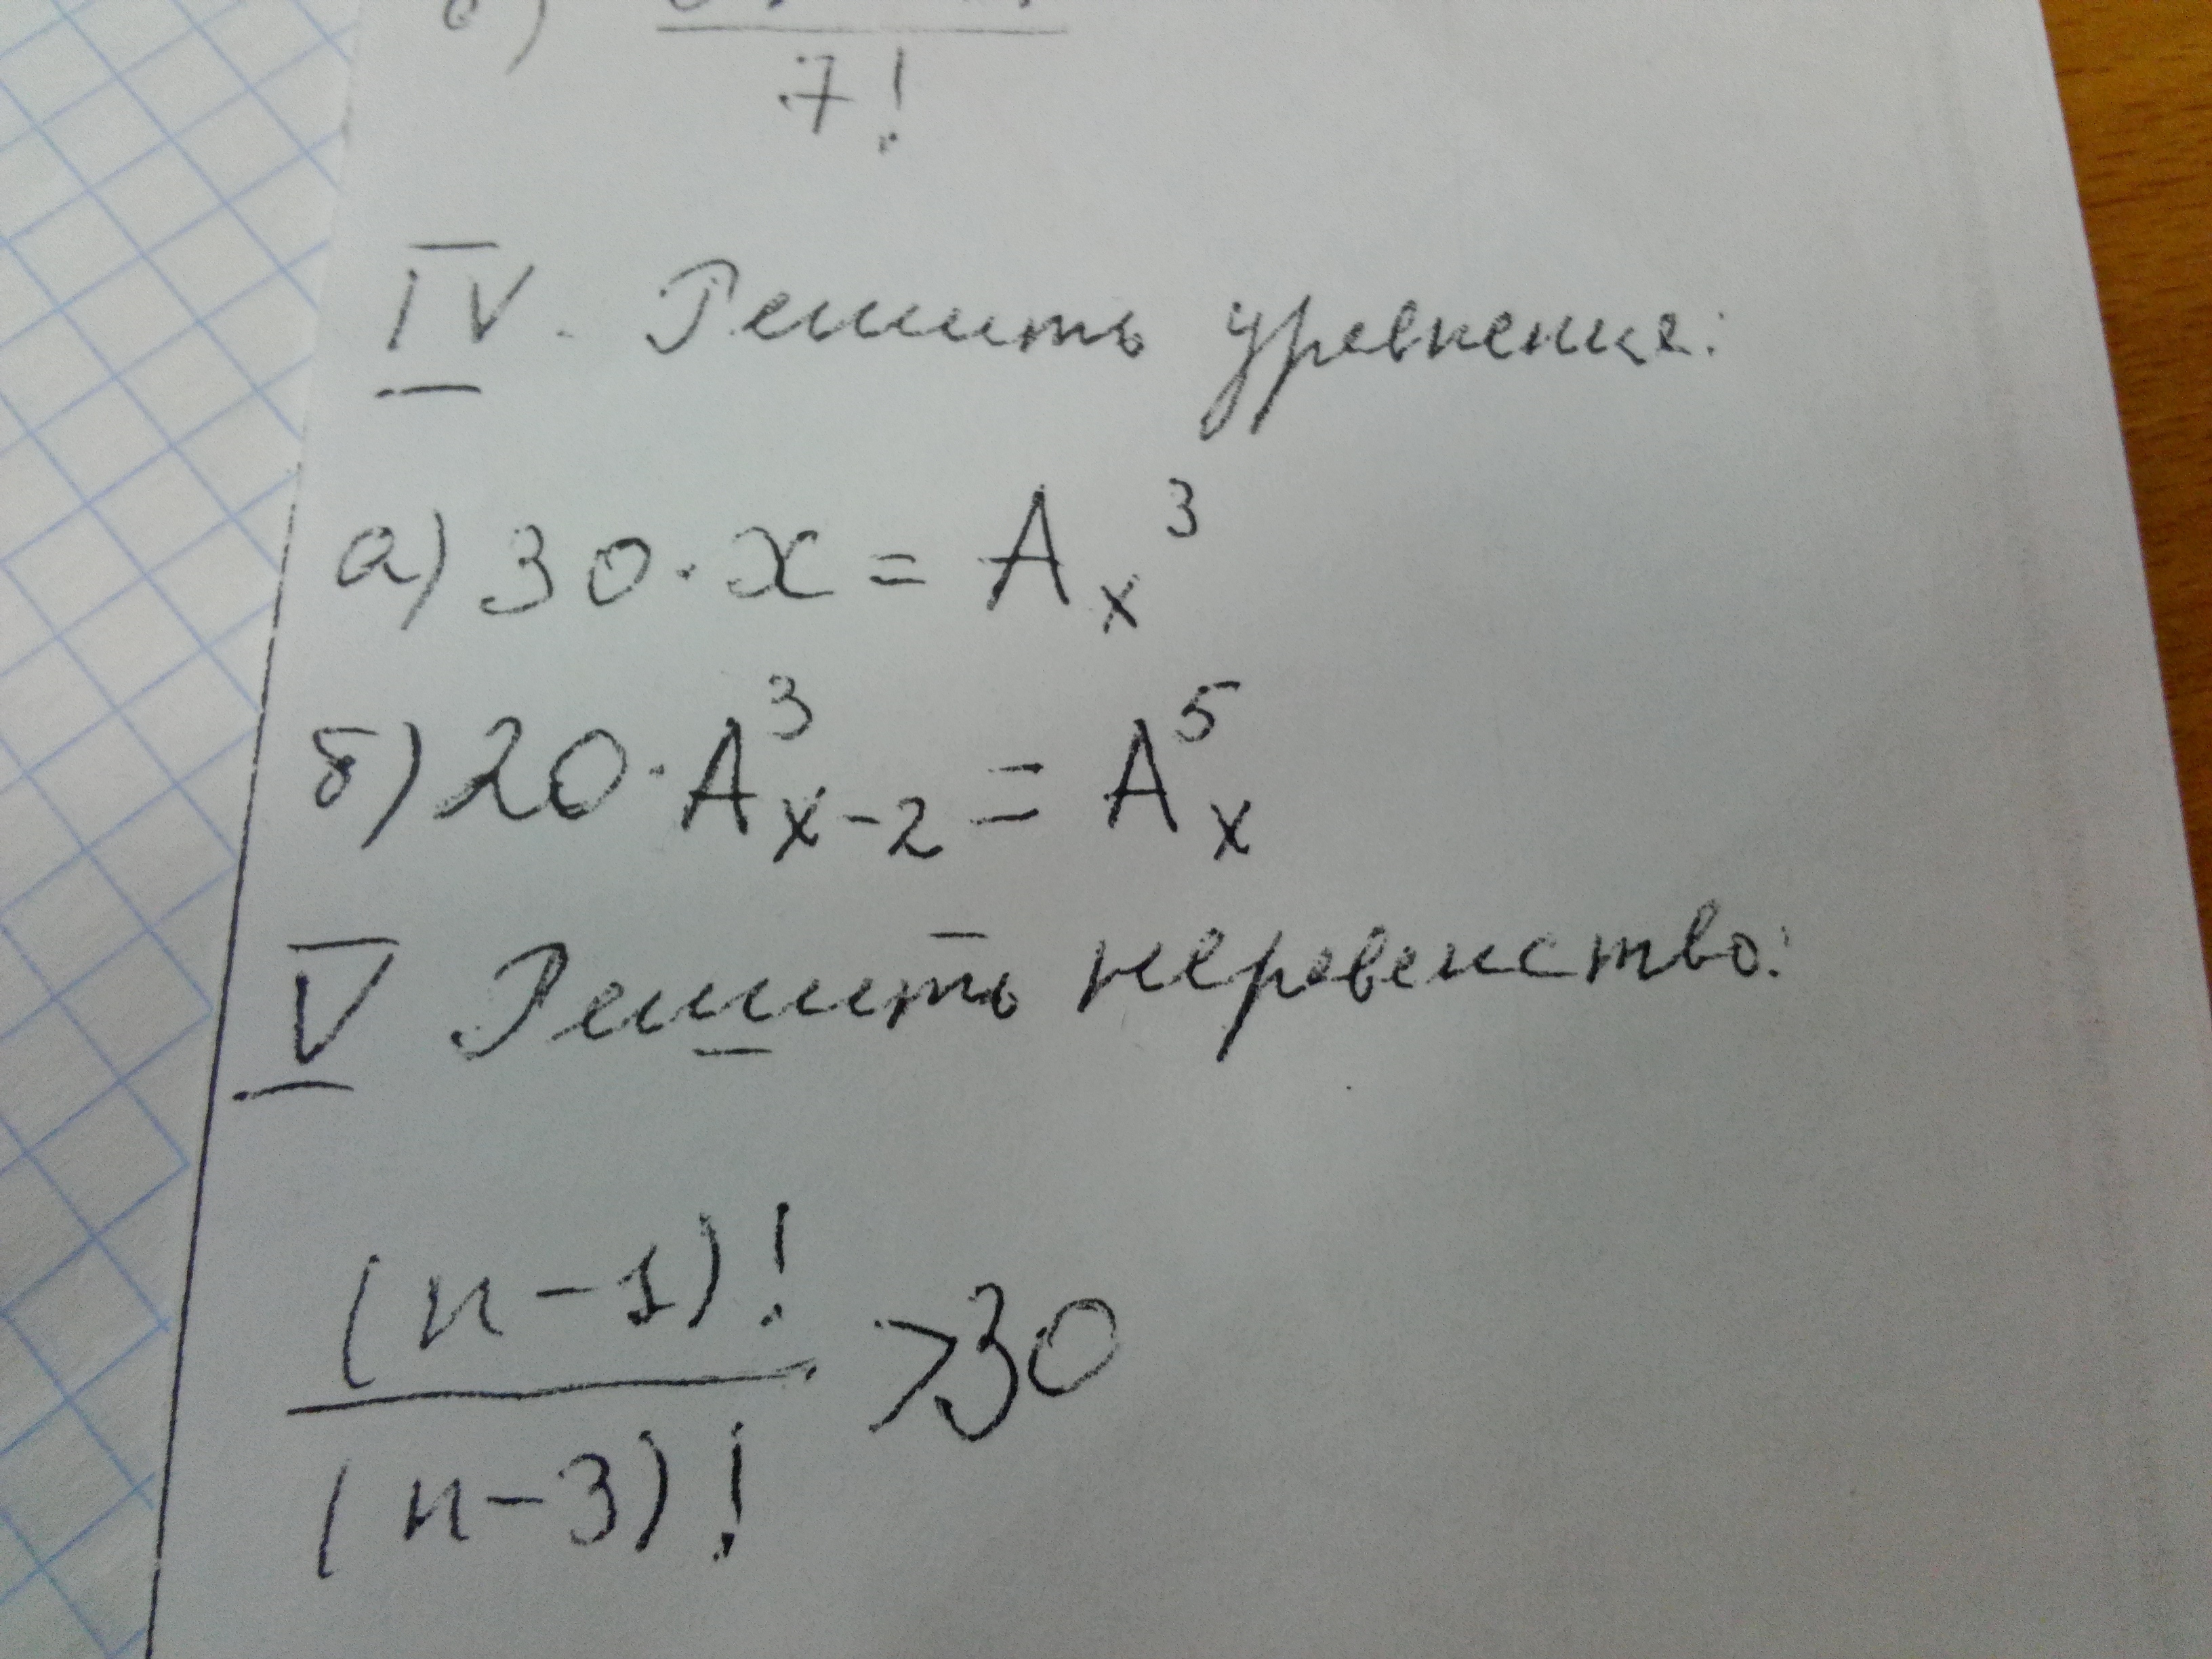 в)
7!
IV. Решить уравнение:
а) 30·x = Aₓ³
б) 20·A³ₓ₋₂ = A⁵ₓ
V Решить неравенство:
(n-1)!
>30
(n-3)!